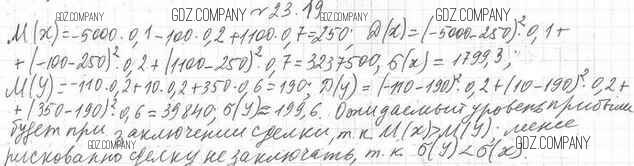 GDZ.COMPANY №23.19 GDZ.COMPANY
M(x)=-5000·0,1-100·0,2+1100·0,7=250; D(x)=(-5000-250)²·0,1+
+(-100-250)²·0,2+(1100-250)²·0,7=3237500, σ(x)=1799,3;
M(Y)=-110·0,2+10·0,2+350·0,6=190; D(y)=(-110-190)²·0,2+(10-190)²·0,2+
+(350-190)²·0,6=39840; σ(Y)≈199,6. Ожидаемый уровень прибыли
будет при заключении сделки, т.к M(x)>M(Y). менее
рискованно сделку не заключать, т.к σ(Y)<σ(x).
GDZ.COMPANY GDZ.COMPANY
GDZ.COMPANY GDZ.COMPANY
GDZ.COMPANY GDZ.COMPANY